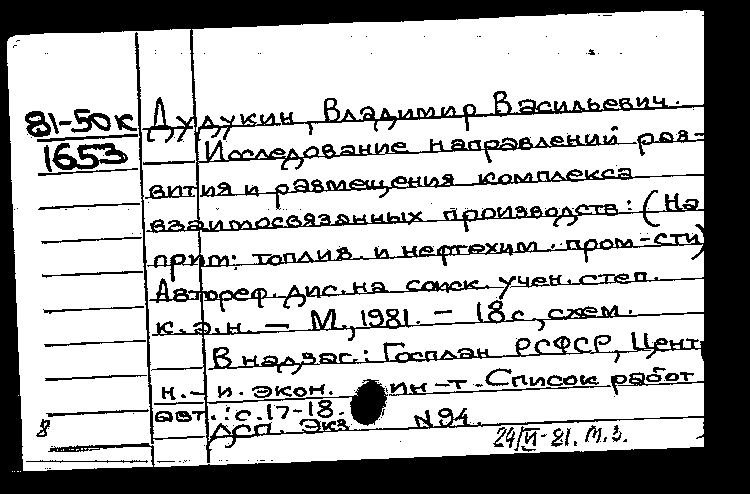 81-50к Дудукин, Владимир Васильевич.
1653 Исследование направлений раз-
вития и размещения комплекса
взаимосвязанных производств: (На
прим: топлив. и нефтехим. пром-сти)
Автореф. дис. на соиск. учен. степ.
к.э.н. — М., 1981. — 18 с., схем.
В надзаг.: Госплан РСФСР, Центр
н.-и. экон. ин-т. Список работ
авт.: с. 17-18.
8 Дсп. Экз. N 94.
24/VI-81. М.З.